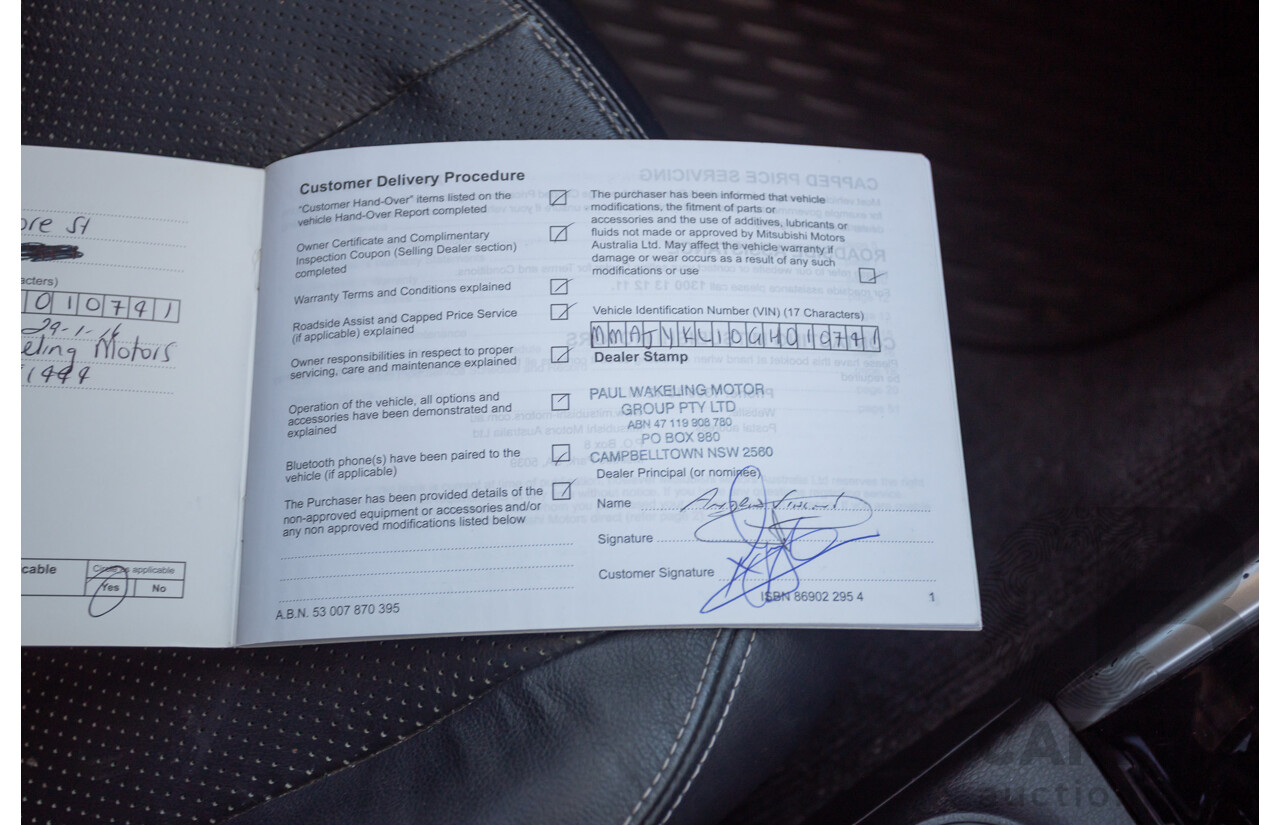 ore St
acters)
010791
29-1-16
eling Motors
1444
cable
Circle as applicable
Yes
No
Customer Delivery Procedure
"Customer Hand-Over" items listed on the
vehicle Hand-Over Report completed
Owner Certificate and Complimentary
Inspection Coupon (Selling Dealer section)
completed
Warranty Terms and Conditions explained
Roadside Assist and Capped Price Service
(if applicable) explained
Owner responsibilities in respect to proper
servicing, care and maintenance explained
Operation of the vehicle, all options and
accessories have been demonstrated and
explained
Bluetooth phone(s) have been paired to the
vehicle (if applicable)
The Purchaser has been provided details of the
non-approved equipment or accessories and/or
any non approved modifications listed below
A.B.N. 53 007 870 395
The purchaser has been informed that vehicle
modifications, the fitment of parts or
accessories and the use of additives, lubricants or
fluids not made or approved by Mitsubishi Motors
Australia Ltd. May affect the vehicle warranty if
damage or wear occurs as a result of any such
modifications or use
Vehicle Identification Number (VIN) (17 Characters)
MMAJYKL10GH010791
Dealer Stamp
PAUL WAKELING MOTOR
GROUP PTY LTD
ABN 47 119 908 780
PO BOX 980
CAMPBELLTOWN NSW 2560
Dealer Principal (or nominee)
Name
Signature
Customer Signature
ISBN 86902 295 4
1